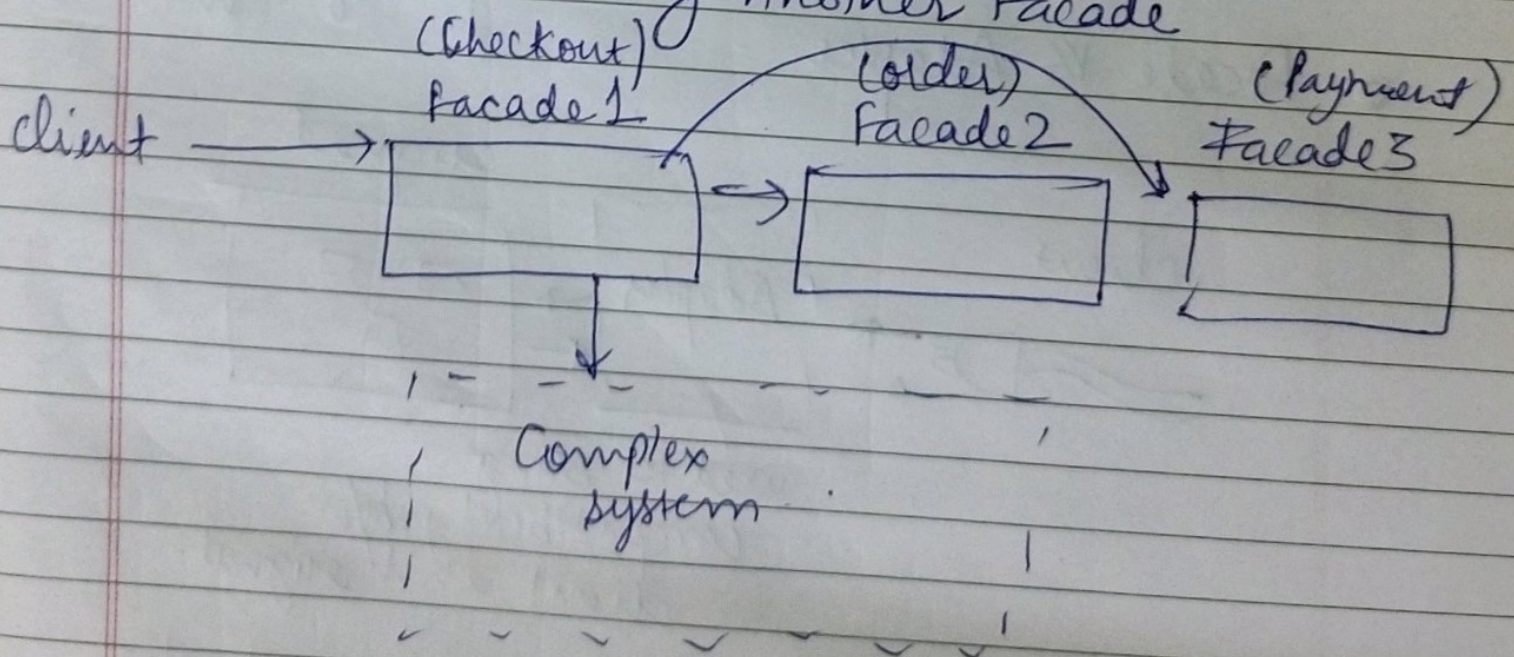 Another Facade
(Checkout)
Facade 1
(Order)
Facade 2
(Payment)
Facade 3
Client
Complex
system